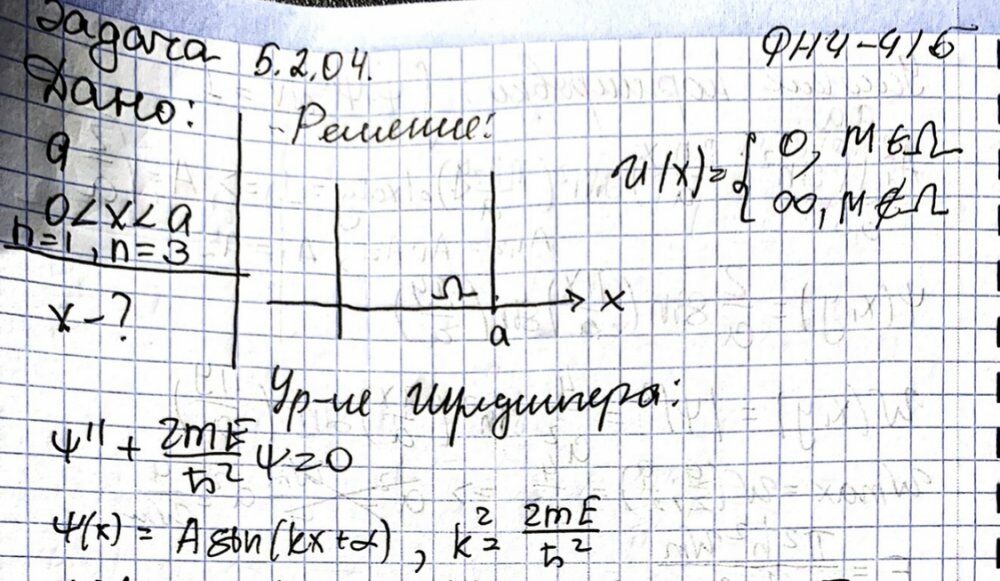 Задача 5.2.04. ФН4-41Б
Дано:
a
0<x<a
n=1, n=3
x-?
Решение:
U(x)={0, M∈Ω
∞, M∉Ω
Ω
x
a
Ур-ие Шредингера:
ψ'' + 2mE/ħ² ψ=0
ψ(x) = A sin(kx+α), k²= 2mE/ħ²